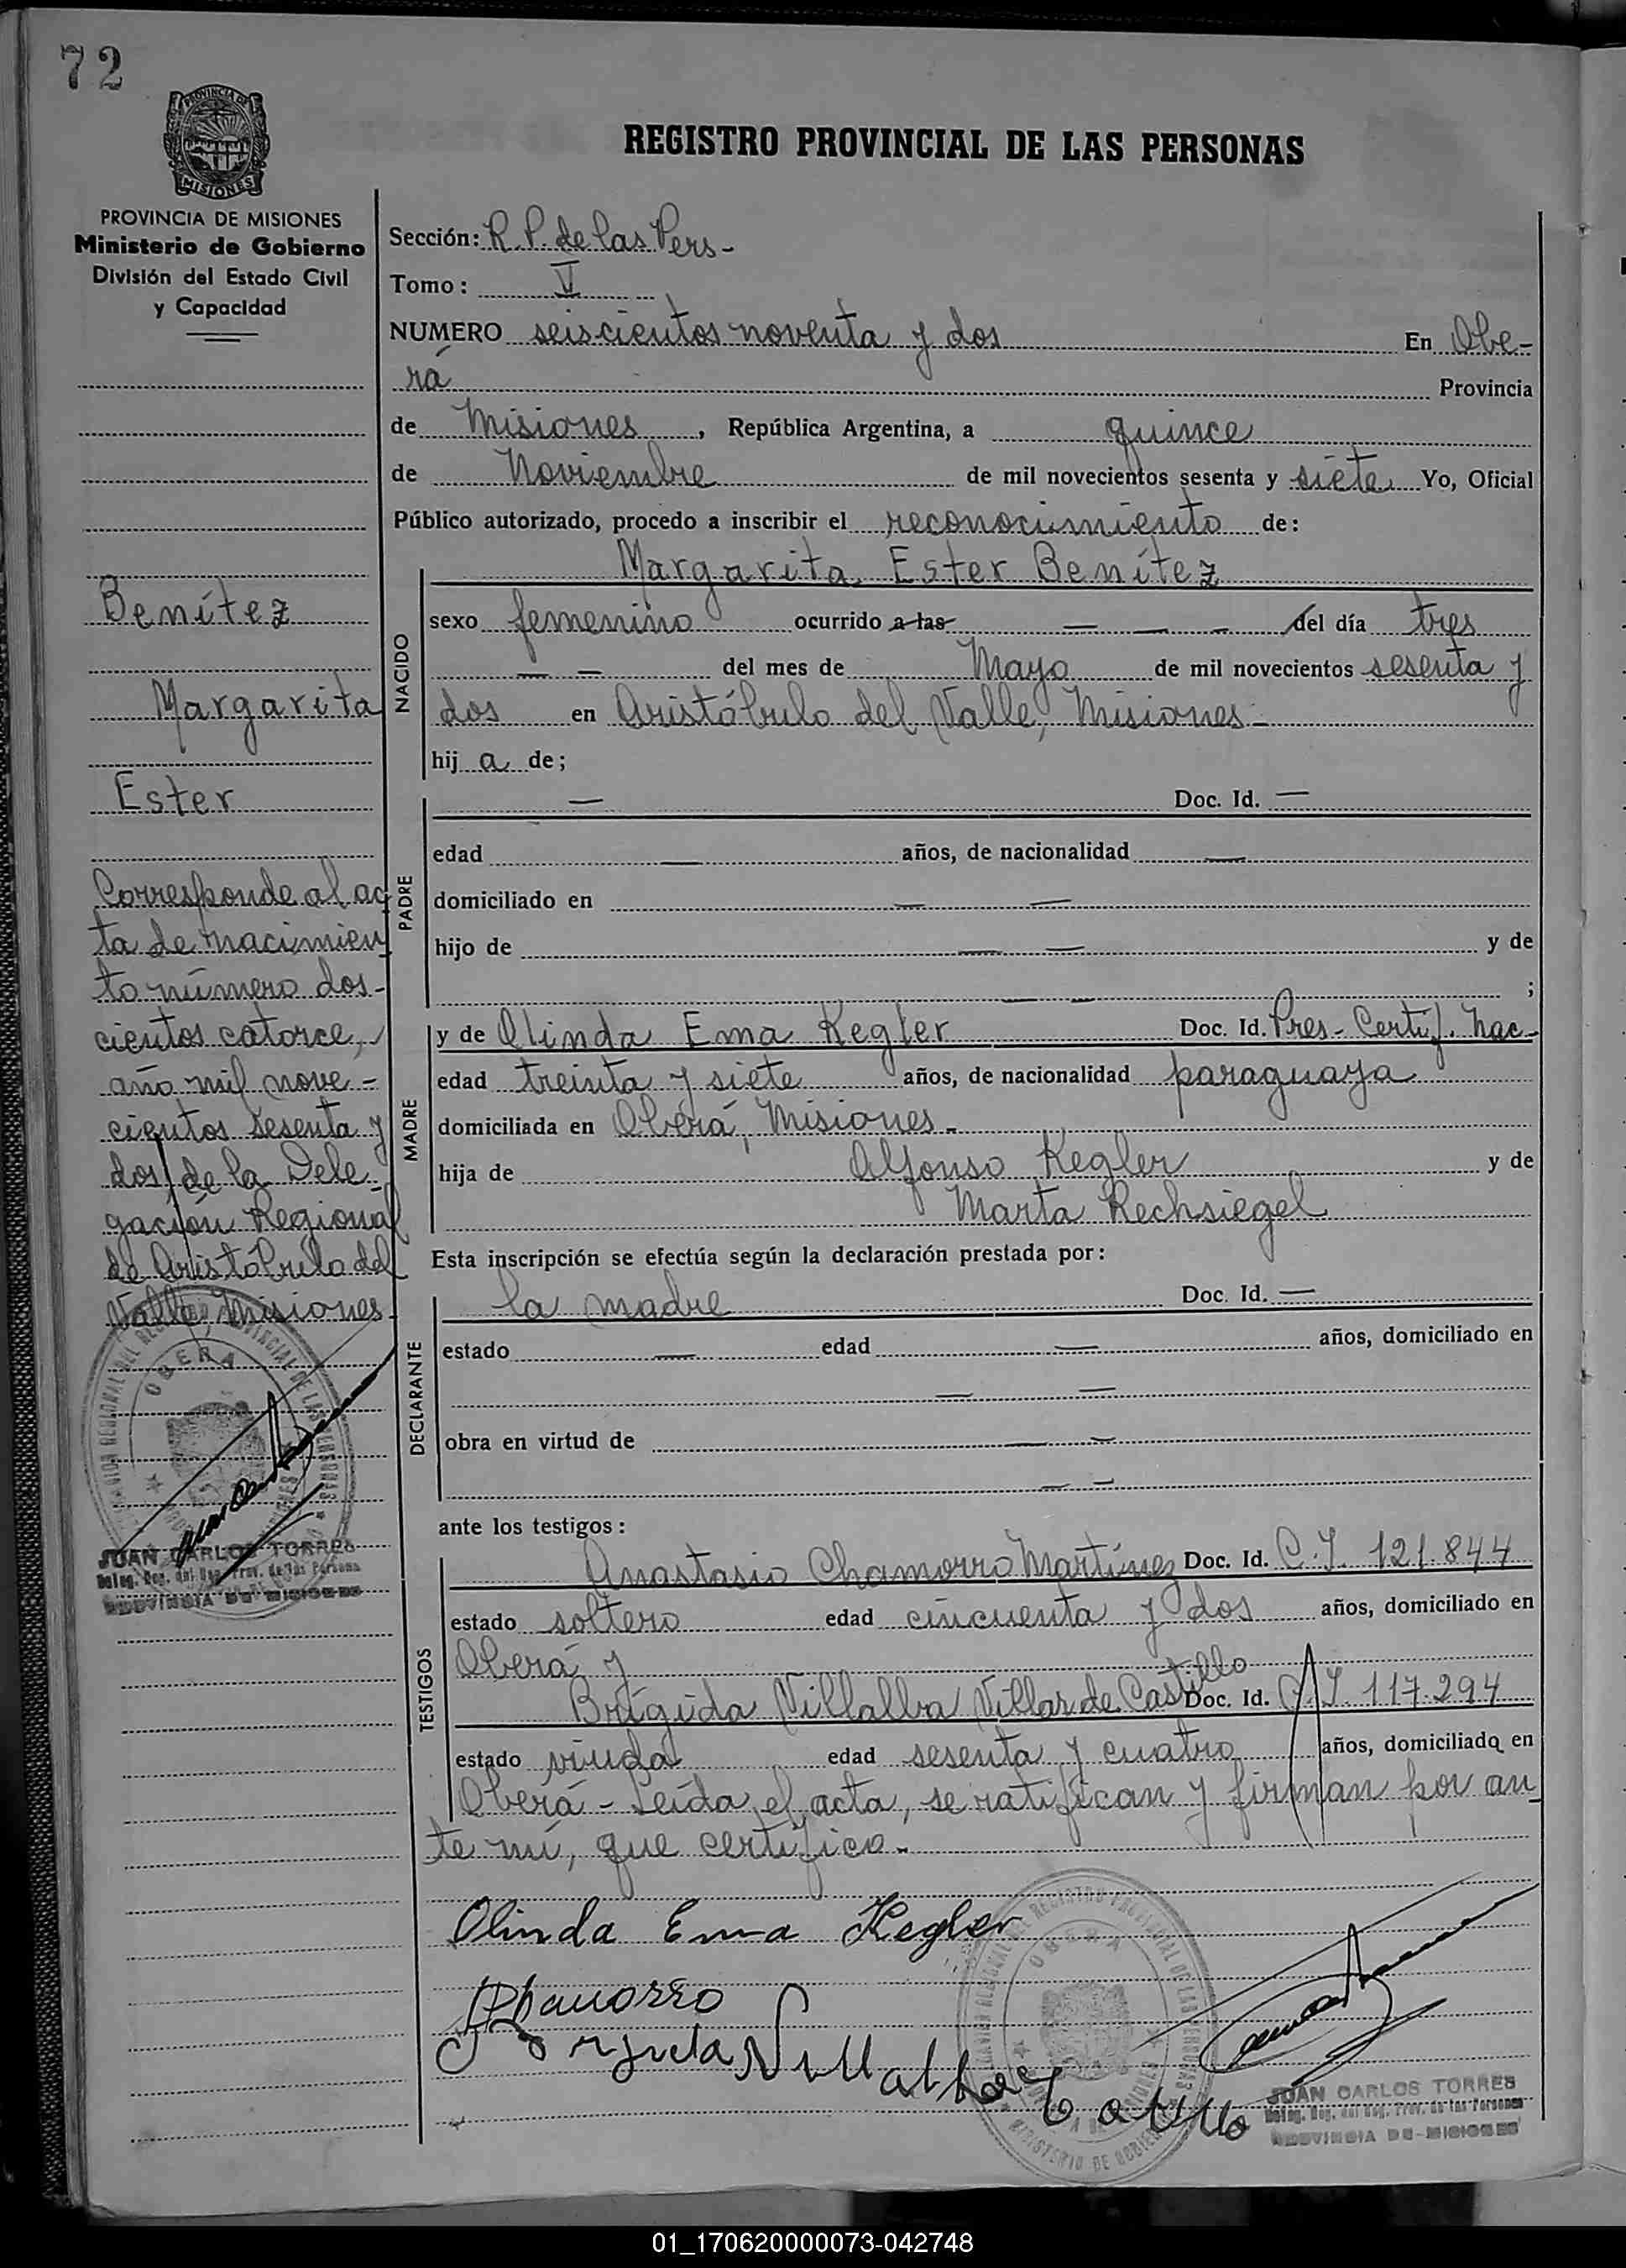 72
PROVINCIA DE
MISIONES
REGISTRO PROVINCIAL DE LAS PERSONAS
PROVINCIA DE MISIONES
Ministerio de Gobierno
División del Estado Civil
y Capacidad
Benítez
Margarita
Ester
Corresponde al ac
ta de nacimien
to número dos-
cientos catorce,
año mil nove-
cientos sesenta y
dos, de la Dele-
gación Regional
de Aristóbulo del
Valle, Misiones.
OBERA
JUAN CARLOS TORRES
Deleg. Reg. del Reg. Prov. de las Persona
PROVINCIA DE MISIONES
Sección: R. P. de las Pers-
Tomo: V
NUMERO seiscientos noventa y dos En Obe-
rá Provincia
de Misiones, República Argentina, a quince
de Noviembre de mil novecientos sesenta y siete Yo, Oficial
Público autorizado, procedo a inscribir el reconocimiento de:
NACIDO
Margarita Ester Benítez
sexo femenino ocurrido a las — — - del día tres
— — del mes de Mayo de mil novecientos sesenta y
dos en Aristóbulo del Valle, Misiones-
hij a de;
PADRE
— Doc. Id. —
edad — años, de nacionalidad —
domiciliado en — —
hijo de — — y de
— — ;
MADRE
y de Olinda Ema Kegler Doc. Id. Pres- Certif. nac-
edad treinta y siete años, de nacionalidad paraguaya
domiciliada en Oberá, Misiones-
hija de Alfonso Kegler y de
Marta Rechsiegel
Esta inscripción se efectúa según la declaración prestada por:
DECLARANTE
la madre Doc. Id. —
estado — edad — años, domiciliado en
— —
obra en virtud de — —
— —
ante los testigos:
TESTIGOS
Anastasio Chamorro Martínez Doc. Id. C. I. 121.844
estado soltero edad cincuenta y dos años, domiciliado en
Oberá y
Brígida Villalba Villar de Castillo Doc. Id. C. I 117.294
estado viuda edad sesenta y cuatro años, domiciliada en
Oberá - Leída el acta, se ratifican y firman por an
te mí, que certifico-
Olinda Ema Kegler
AChamorro
Brijida Villalba
OBERA
JUAN CARLOS TORRES
Deleg. Reg. del Reg. Prov. de las Personas
PROVINCIA DE MISIONES
01_170620000073-042748